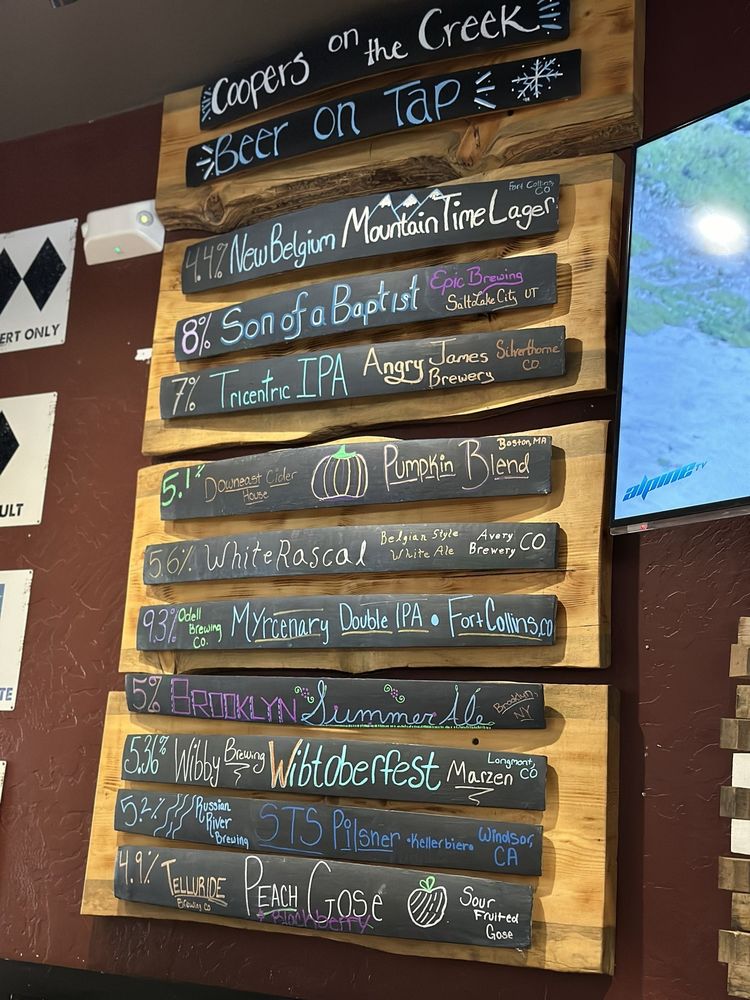 Coopers on the Creek
Beer on Tap
4.4% New Belgium Mountain Time Lager Fort Collins, CO
8% Son of a Baptist Epic Brewing Salt Lake City UT
7% Tricentric IPA Angry James Brewery Silverthorne CO.
5.1% Downeast Cider House Pumpkin Blend Boston, MA
5.6% White Rascal Belgian Style White Ale Avery Brewery CO
9.3% Odell Brewing Co. Myrcenary Double IPA • Fort Collins, CO
5% Brooklyn Summer Ale Brooklyn, NY
5.36% Wibby Brewing Wibtoberfest Marzen Longmont, CO
5.2% Russian River Brewing STS Pilsner • Kellerbier • Windsor, CA
4.9% Telluride Brewing Co Peach Gose + Blackberry Sour Fruited Gose
ERT ONLY
ULT
TE
alpine TV